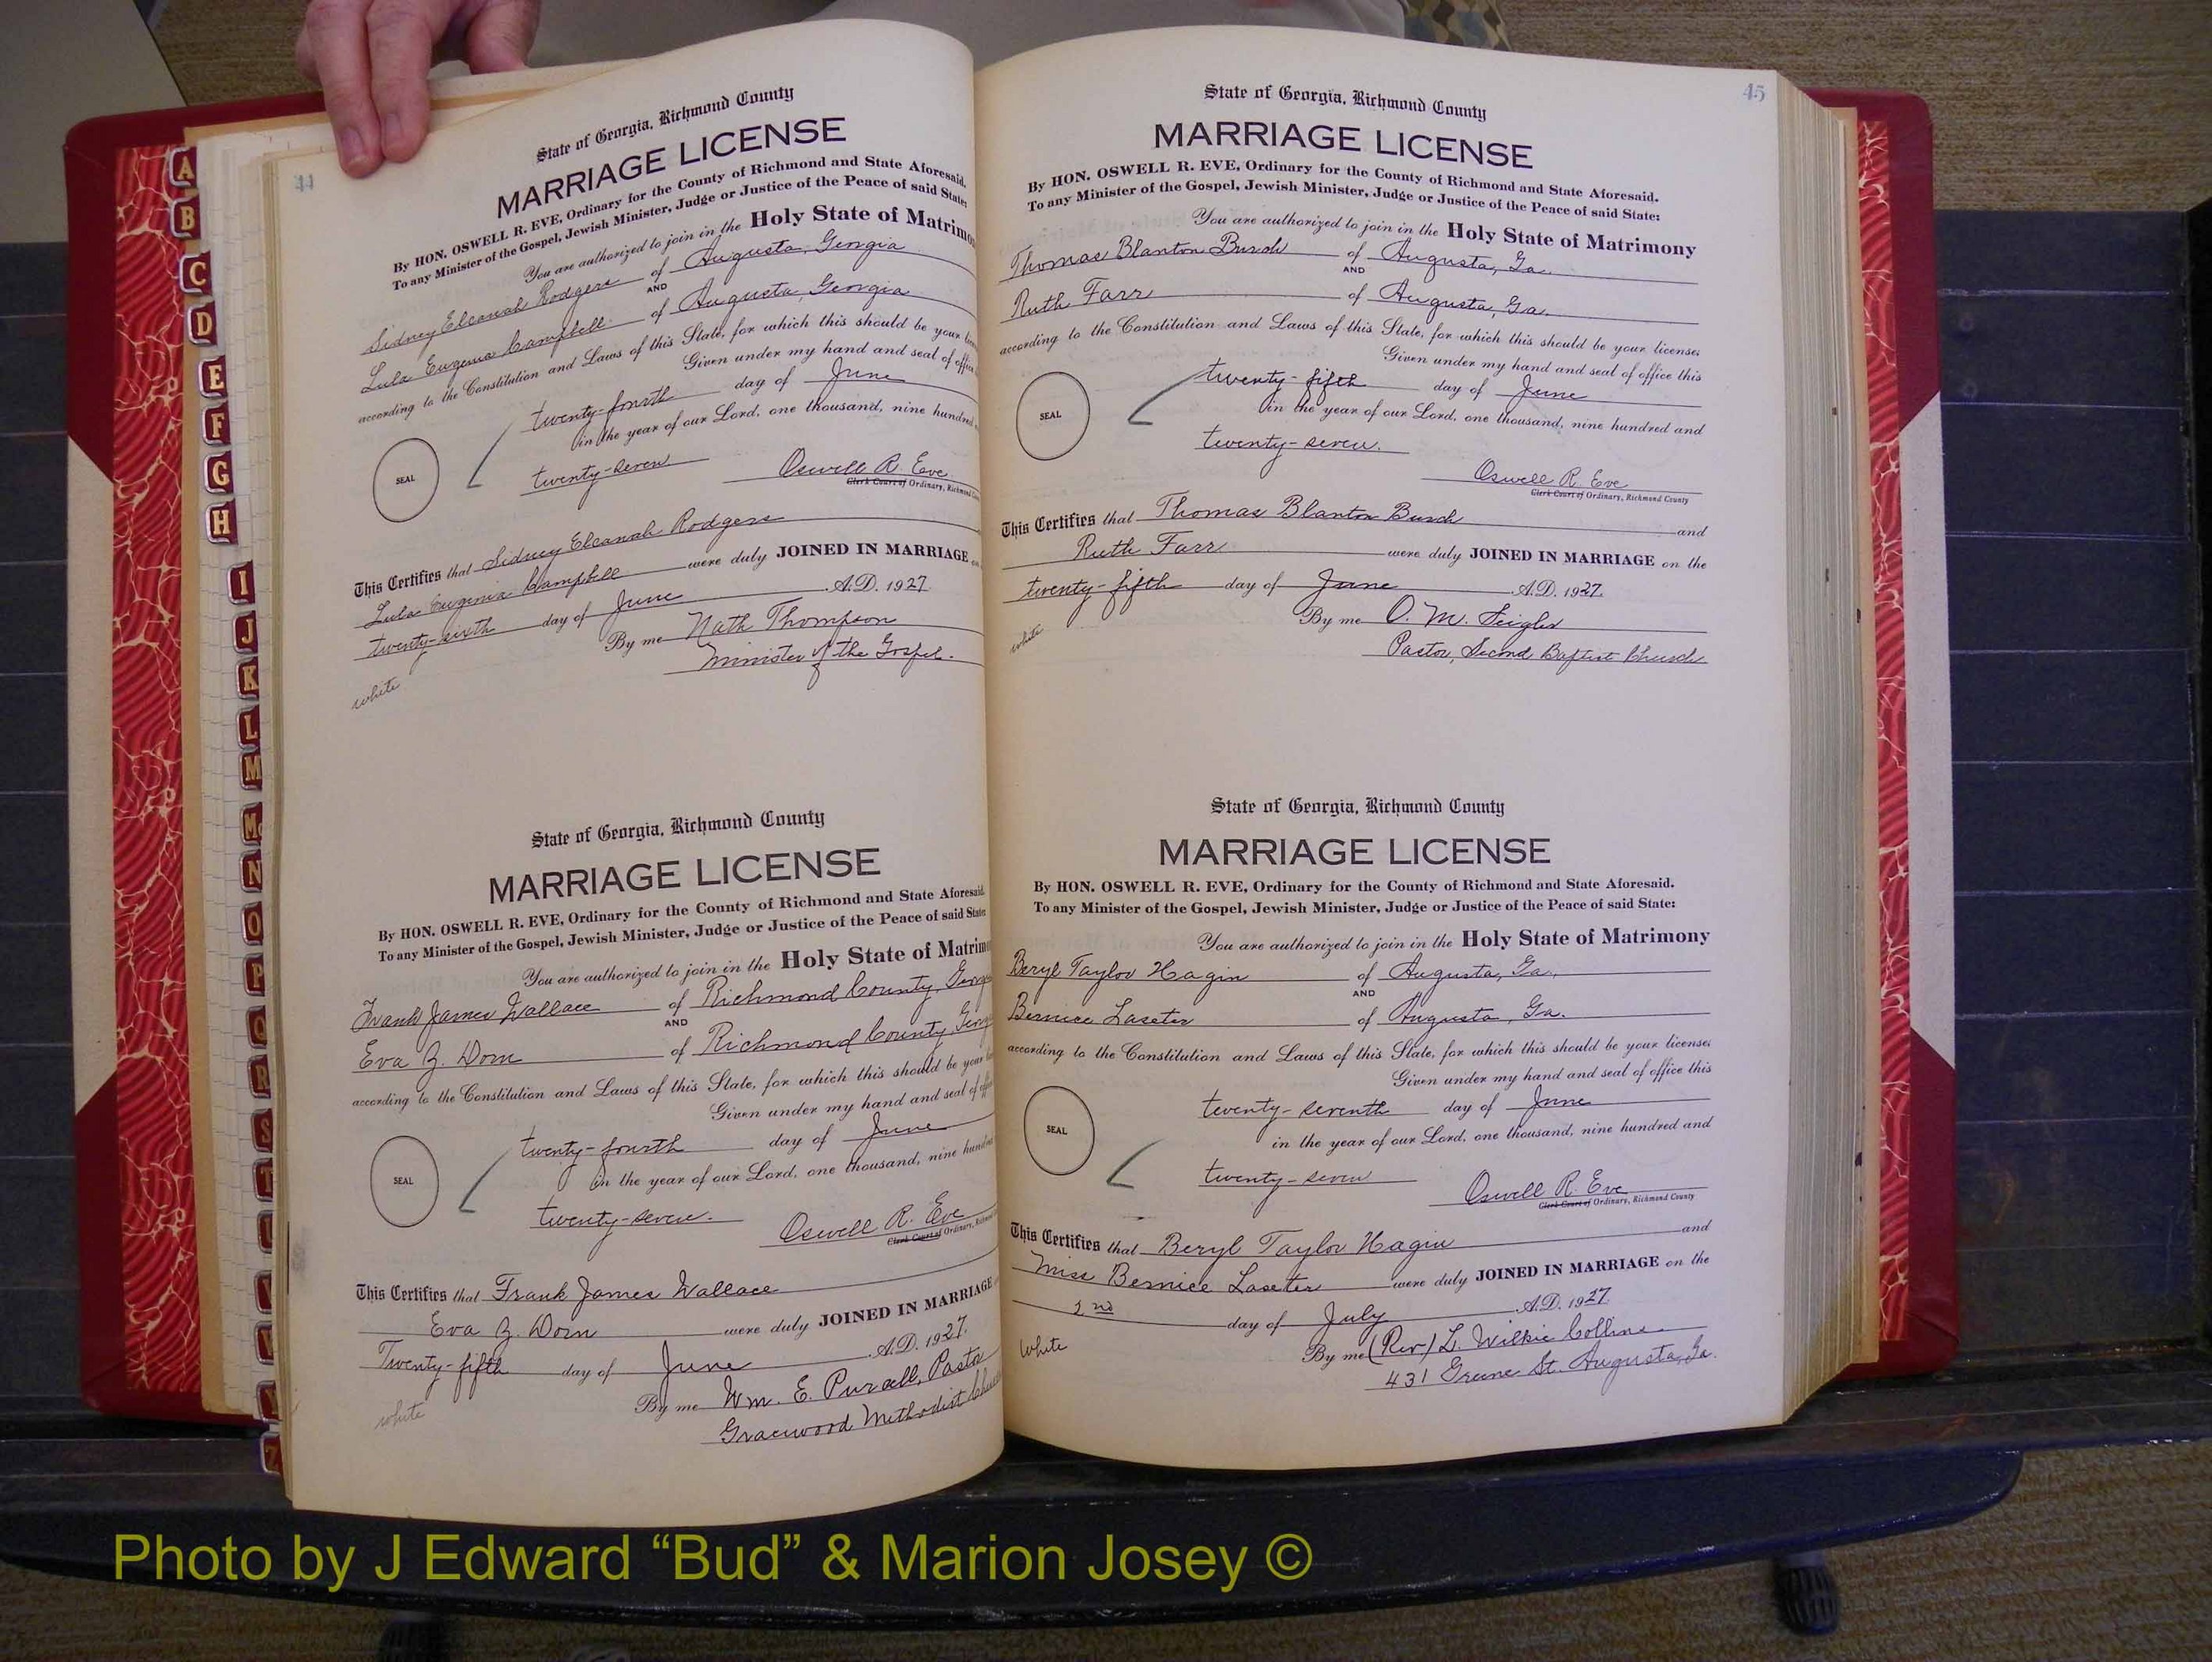 A
B
C
D
E
F
G
H
I
J
K
L
M
Mc
N
O
P
Q
R
S
T
Z
44
State of Georgia, Richmond County
MARRIAGE LICENSE
By HON. OSWELL R. EVE, Ordinary for the County of Richmond and State Aforesaid.
To any Minister of the Gospel, Jewish Minister, Judge or Justice of the Peace of said State:
You are authorized to join in the Holy State of Matrimo
Sidney Elcanah Rodgers of Augusta, Georgia
AND
Lula Eugenia Campbell of Augusta, Georgia
according to the Constitution and Laws of this State, for which this should be your
Given under my hand and seal of office
twenty-fourth day of June
in the year of our Lord, one thousand, nine hundred
SEAL
twenty-seven
Oswell R. Eve
Clerk Court of Ordinary, Richmond
This Certifies that Sidney Elcanah Rodgers
Lula Eugenia Campbell were duly JOINED IN MARRIAGE
twenty-sixth day of June A.D. 1927.
By me Nath Thompson
Minister of the Gospel.
white
State of Georgia, Richmond County
MARRIAGE LICENSE
By HON. OSWELL R. EVE, Ordinary for the County of Richmond and State Aforesaid.
To any Minister of the Gospel, Jewish Minister, Judge or Justice of the Peace of said State:
You are authorized to join in the Holy State of Matrim
Frank James Wallace of Richmond County, Georg
AND
Eva Z. Dorn of Richmond County, Georg
according to the Constitution and Laws of this State, for which this should be your
Given under my hand and seal of
twenty-fourth day of June
in the year of our Lord, one thousand, nine hund
SEAL
twenty-seven.
Oswell R. Eve
Clerk Court of Ordinary,
This Certifies that Frank James Wallace
Eva Z. Dorn were duly JOINED IN MARRIAGE
Twenty-fifth day of June A.D. 1927.
By me Wm. E. Purcell, Pasto
Gracewood Methodist
white
45
State of Georgia, Richmond County
MARRIAGE LICENSE
By HON. OSWELL R. EVE, Ordinary for the County of Richmond and State Aforesaid.
To any Minister of the Gospel, Jewish Minister, Judge or Justice of the Peace of said State:
You are authorized to join in the Holy State of Matrimony
Thomas Blanton Busch of Augusta, Ga.
AND
Ruth Farr of Augusta, Ga.
according to the Constitution and Laws of this State, for which this should be your license:
Given under my hand and seal of office this
twenty-fifth day of June
in the year of our Lord, one thousand, nine hundred and
SEAL
twenty-seven.
Oswell R. Eve
Clerk Court of Ordinary, Richmond County
This Certifies that Thomas Blanton Busch and
Ruth Farr were duly JOINED IN MARRIAGE on the
twenty-fifth day of June A.D. 1927.
By me O. M. Seigler
Pastor, Second Baptist Church
white
State of Georgia, Richmond County
MARRIAGE LICENSE
By HON. OSWELL R. EVE, Ordinary for the County of Richmond and State Aforesaid.
To any Minister of the Gospel, Jewish Minister, Judge or Justice of the Peace of said State:
You are authorized to join in the Holy State of Matrimony
Beryl Taylor Hagin of Augusta, Ga.
AND
Bernice Laseter of Augusta, Ga.
according to the Constitution and Laws of this State, for which this should be your license:
Given under my hand and seal of office this
twenty-seventh day of June
in the year of our Lord, one thousand, nine hundred and
SEAL
twenty-seven
Oswell R. Eve
Clerk Court of Ordinary, Richmond County
This Certifies that Beryl Taylor Hagin and
Miss Bernice Laseter were duly JOINED IN MARRIAGE on the
2nd day of July A.D. 1927.
By me (Rev) L. Wilkie Collins
431 Greene St. Augusta, Ga.
White
Photo by J Edward “Bud” & Marion Josey ©